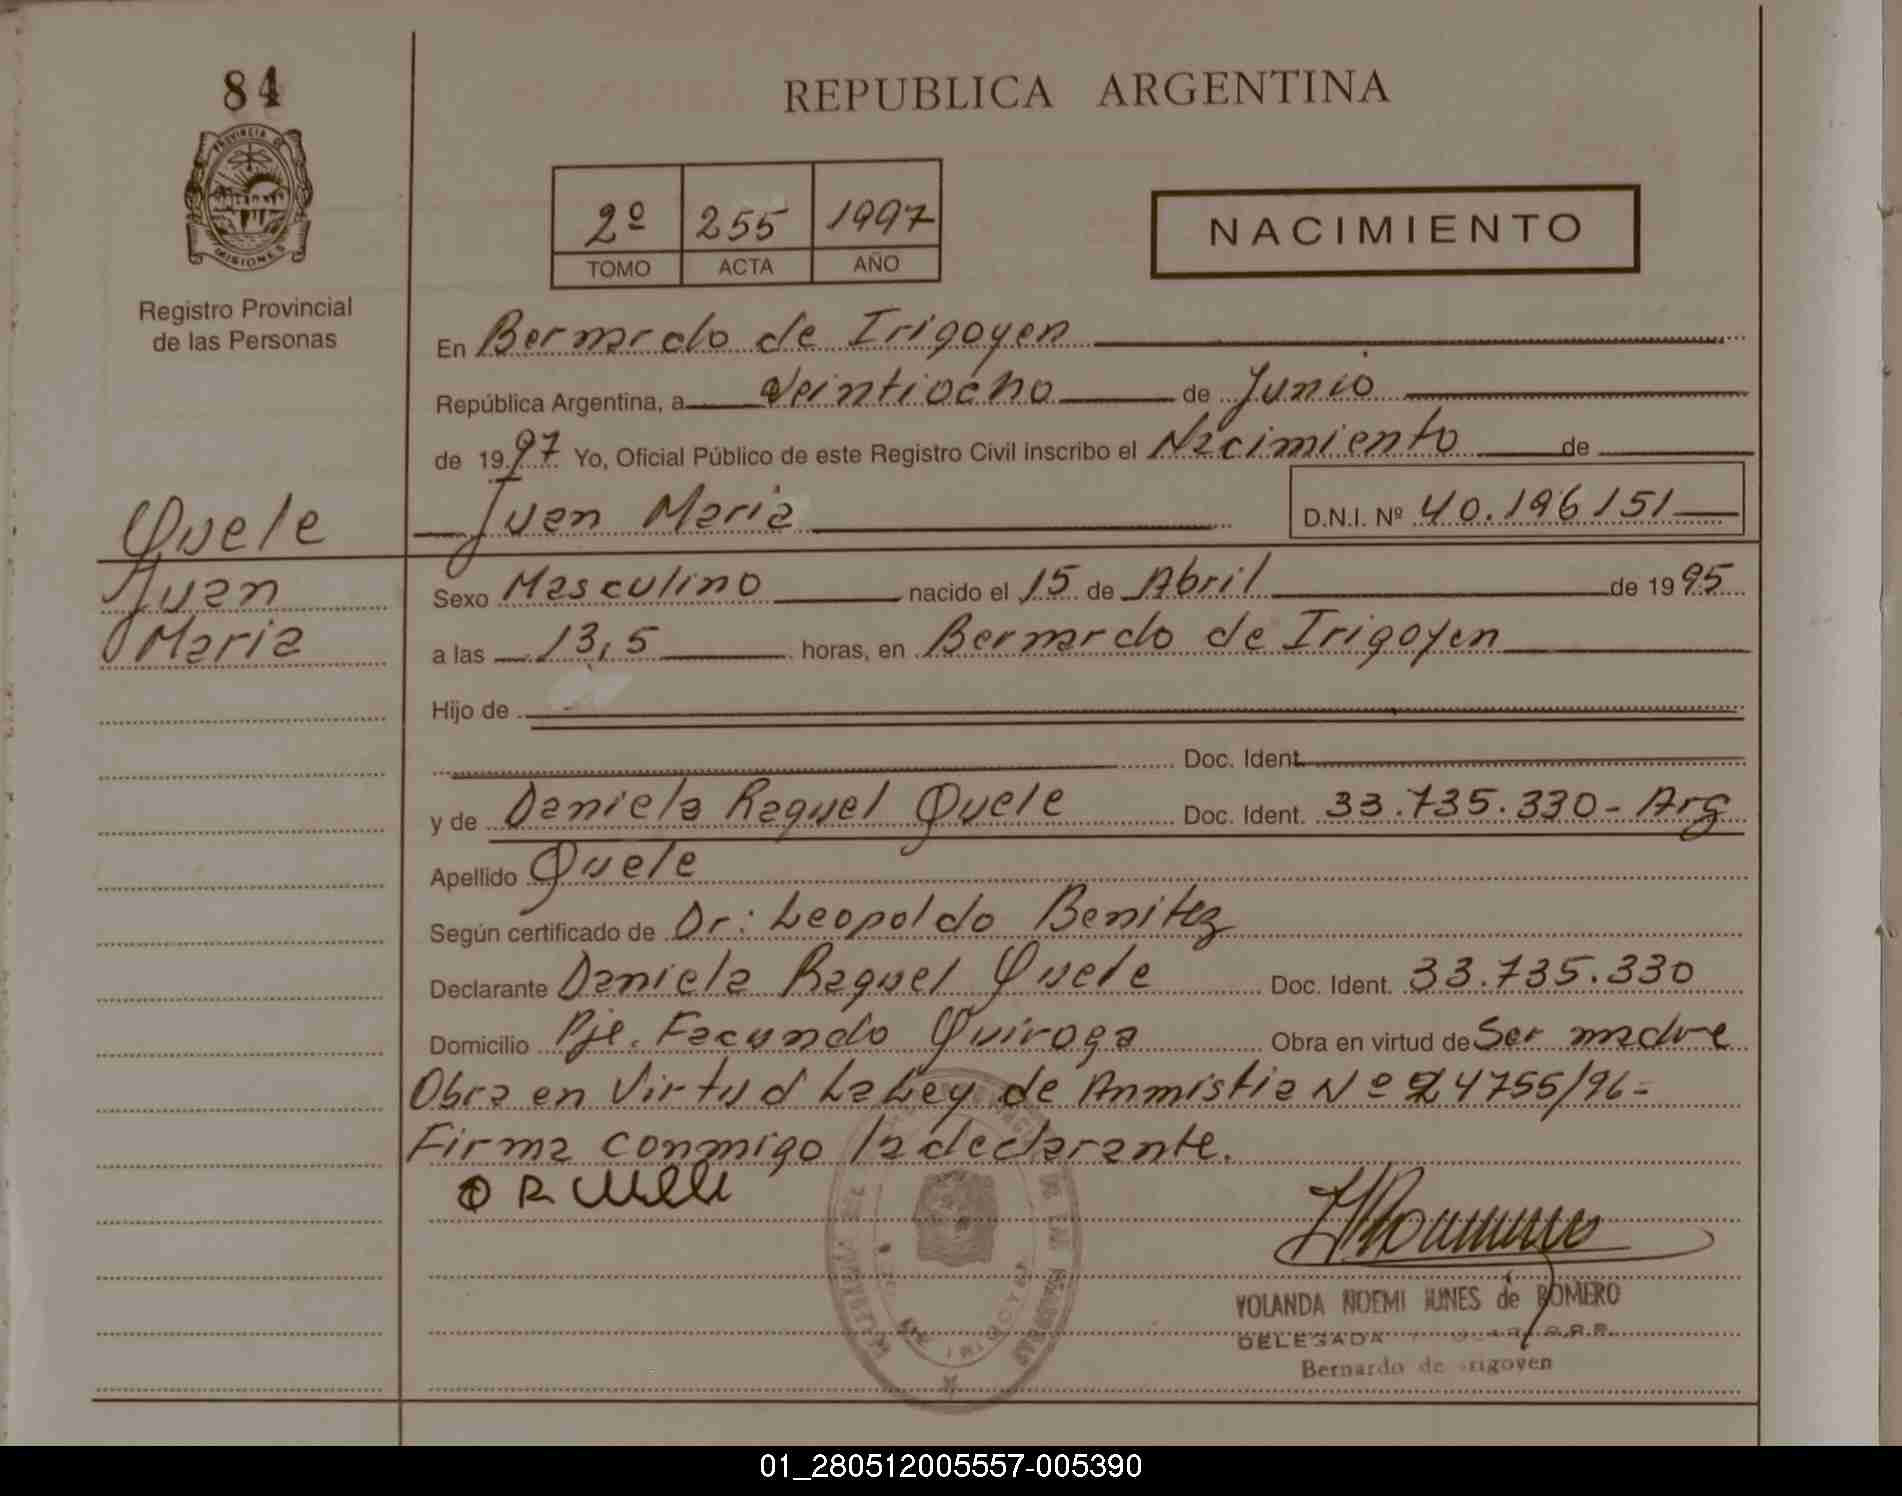 84
REPUBLICA ARGENTINA
PROVINCIA DE
MISIONES
Registro Provincial
de las Personas
2º 255 1997
TOMO ACTA AÑO
NACIMIENTO
En Bernardo de Irigoyen
República Argentina, a Veintiocho de Junio
de 1997 Yo, Oficial Público de este Registro Civil inscribo el Nacimiento de
Juan Maria D.N.I. Nº 40.196151
Quele
Juan
Maria
Sexo Masculino nacido el 15 de Abril de 1995
a las 13,5 horas, en Bernardo de Irigoyen
Hijo de
Doc. Ident.
y de Daniela Raquel Quele Doc. Ident. 33.735.330- Arg
Apellido Quele
Según certificado de Dr: Leopoldo Benitez
Declarante Daniela Raquel Quele Doc. Ident. 33.735.330
Domicilio Pje. Facundo Quiroga Obra en virtud de Ser madre
Obra en Virtud La Ley de Anmistia Nº 24755/96-
Firma conmigo la declarante.
YOLANDA NOEMI de ROMERO
DELEGADA
Bernardo de Irigoyen
01_280512005557-005390